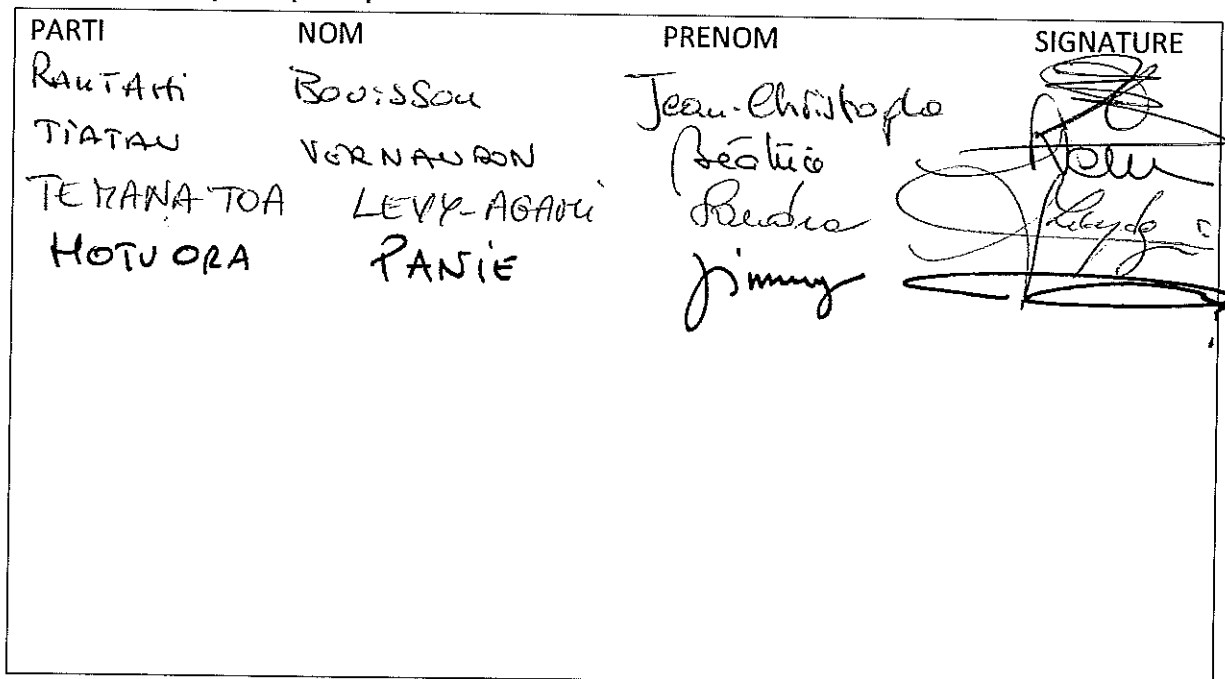 PARTI NOM PRENOM SIGNATURE
RAUTAHI BOUISSOU Jean-Christophe
TIATAU VERNAUDON Béatrice
TEMANA TOA LEVY-AGAMI Sandra
HOTU ORA PANIE Jimmy